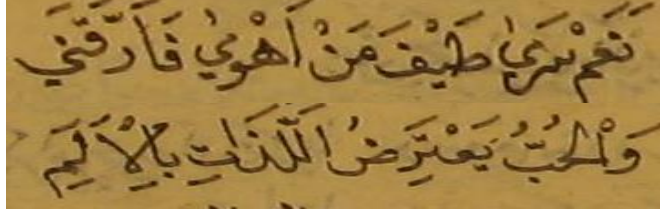 نَعَمْ سَرىٰ طَيْفَ مَنْ اَهْوىٰ فَاَرَّقَنَي
وَالْحُبُّ يَعْتَرِضُ اللَّذَاتِ بِالْاَلَمِ